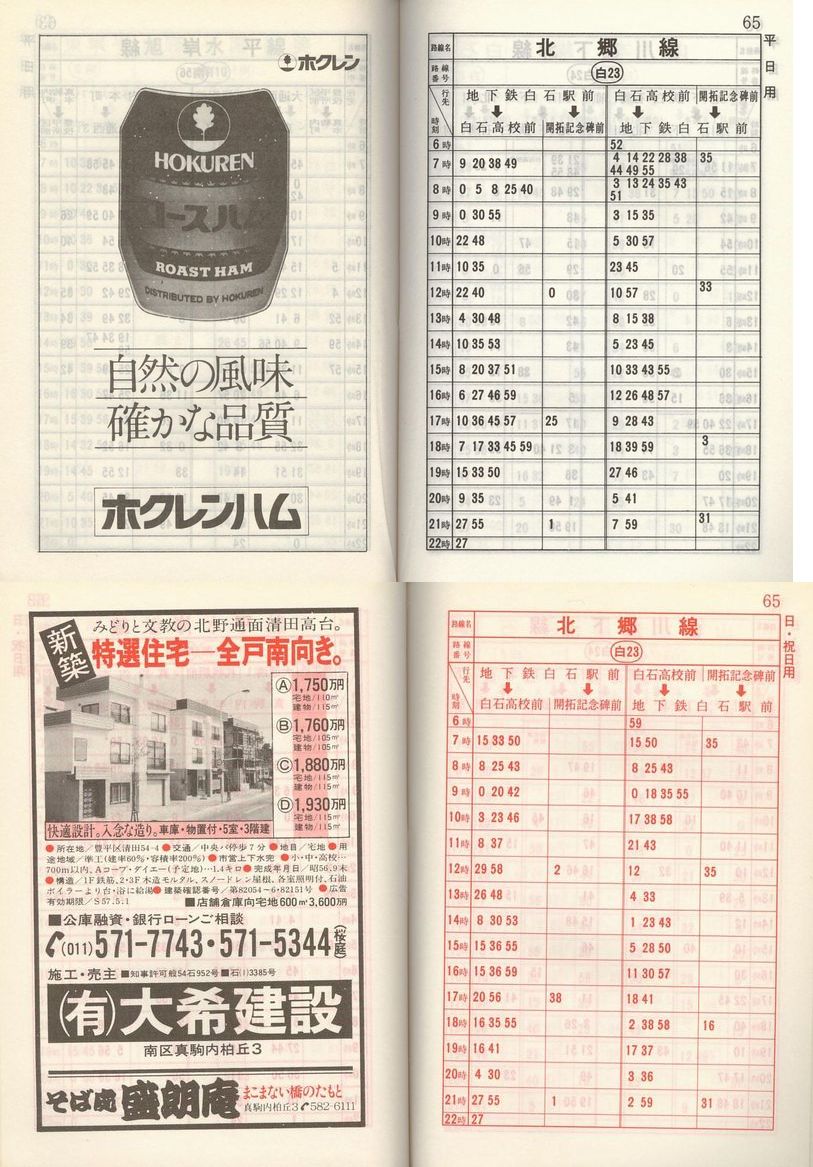 ホクレン
HOKUREN
ロースハム
ROAST HAM
DISTRIBUTED BY HOKUREN
自然の風味
確かな品質
ホクレンハム
65
平日用
路線名 北郷線
路線番号 白23
行先 時刻
地下鉄白石駅前 白石高校前 開拓記念碑前
白石高校前 開拓記念碑前 地下鉄白石駅前
6時 52
7時 9 20 38 49 4 14 22 28 38 44 49 55 35
8時 0 5 8 25 40 3 13 24 35 43 51
9時 0 30 55 3 15 35
10時 22 48 5 30 57
11時 10 35 23 45
12時 22 40 0 10 57 33
13時 4 30 48 8 15 38
14時 10 35 53 5 23 45
15時 8 20 37 51 10 33 43 55
16時 6 27 46 59 12 26 48 57
17時 10 36 45 57 25 9 28 43
18時 7 17 33 45 59 18 39 59 3
19時 15 33 50 27 46
20時 9 35 5 41
21時 27 55 1 7 59 31
22時 27
新築
みどりと文教の北野通面清田高台。
特選住宅―全戸南向き。
Ⓐ1,750万円
宅地/110㎡
建物/115㎡
Ⓑ1,760万円
宅地/105㎡
建物/105㎡
Ⓒ1,880万円
宅地/115㎡
建物/115㎡
Ⓓ1,930万円
宅地/115㎡
建物/115㎡
快適設計。入念な造り。車庫・物置付・5室・3階建
●所在地/豊平区清田54-4●交通/中央・バ停歩7分●地目/宅地●用
途地域/準工(建率60%・容積率200%)●市営上下水完●小・中・高校…
700m以内、Aコープ・ダイエー(予定地)…1.4キロ●完成年月日/昭56.9末
●構造/1F鉄筋、2・3F木造モルタル、スノードレン屋根、各室照明付、石油
ボイラーより台・浴に給湯●建築確認番号/第82054~6・82151号●広告
有効期限/S57.5.1 ■店舗倉庫向宅地600㎡3,600万円
■公庫融資・銀行ローンご相談
(011)571-7743・571-5344(桜庭)
施工・売主 ■知事許可般54石952号■石(1)3385号
(有)大希建設
南区真駒内柏丘3
そば処 盛朗庵 まこまない橋のたもと
真駒内柏丘3 582-6111
65
日・祝日用
路線名 北郷線
路線番号 白23
行先 時刻
地下鉄白石駅前 白石高校前 開拓記念碑前
白石高校前 開拓記念碑前 地下鉄白石駅前
6時 59
7時 15 33 50 15 50 35
8時 8 25 43 8 25 43
9時 0 20 42 0 18 35 55
10時 3 23 46 17 38 58
11時 8 37 21 43
12時 29 58 2 12 35
13時 26 48 4 33
14時 8 30 53 1 23 43
15時 15 36 55 5 28 50
16時 15 36 59 11 30 57
17時 20 56 38 18 41
18時 16 35 55 2 38 58 16
19時 16 41 17 37
20時 4 30 3 36
21時 27 55 1 2 59 31
22時 27